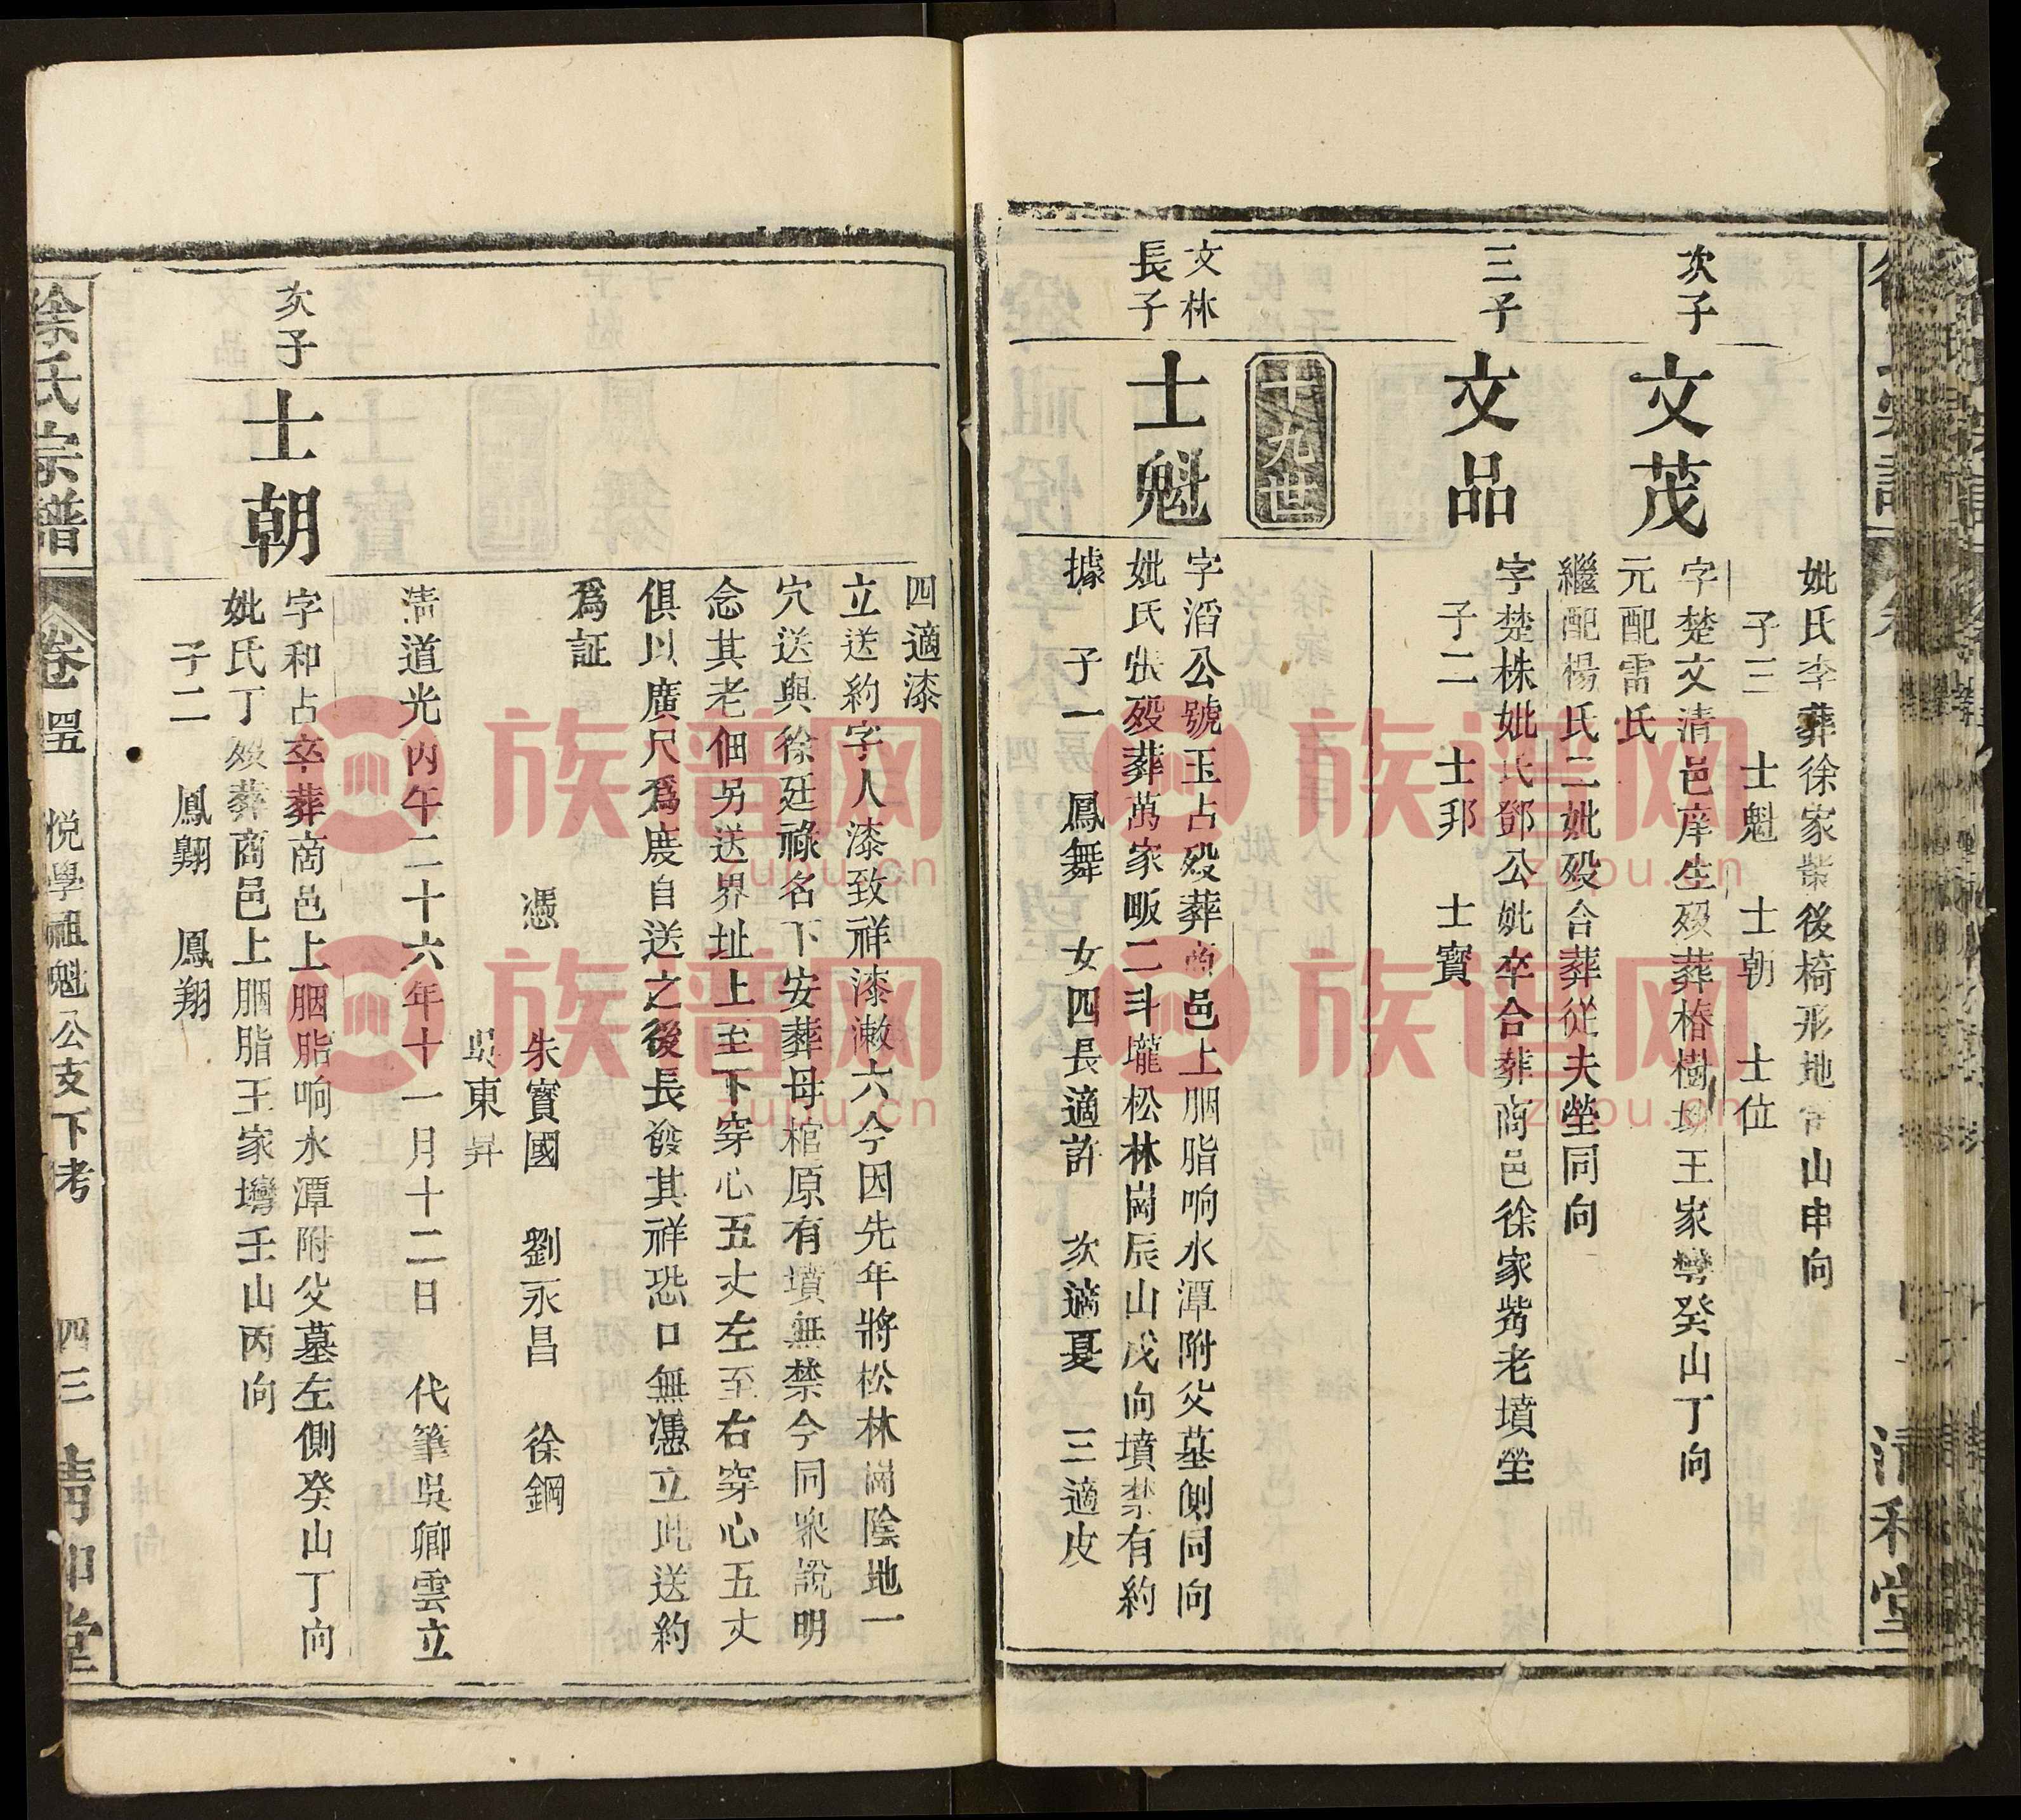 妣氏李葬徐家柴後椅形地
山申向
子三 士魁 士朝 士位
次子
文茂
字楚文清邑庠生歿葬椿樹
王家灣癸山丁向
元配雷氏
繼配楊氏二妣歿合葬從夫塋同向
三子
文品
字楚株妣氏鄧公妣卒合葬商邑徐家嘴老墳塋
子二 士邦 士寳
十九世
文林
長子
士魁
字滔公號玉占歿葬商邑上胭脂响水潭附父墓側同向
妣氏張歿葬萬家畈二斗壠松林崗辰山戌向墳禁有約
據 子一 鳳舞 女四長適許 次適夏 三適皮
四適漆
立送約字人漆致祥漆漱六今因先年將松林崗陰地一
穴送與徐廷祿名下安葬母棺原有墳無禁今同衆說明
念其老佃另送界址上至下穿心五丈左至右穿心五丈
俱以廣尺爲度自送之後長發其祥恐口無憑立此送約
爲証
憑 朱寳國 劉永昌 徐鋼
吳東昇
清道光丙午二十六年十一月十二日 代筆吳卿雲立
次子
士朝
字和占卒葬商邑上胭脂响水潭附父墓左側癸山丁向
妣氏丁歿葬商邑上胭脂王家灣壬山丙向
子二 鳳翺 鳳翔
徐氏宗譜 卷四五 悅學祖魁公支下考 四三 清和堂
族谱网
zupu.cn
族谱网
zupu.cn
族谱网
zupu.cn
族谱网
zupu.cn